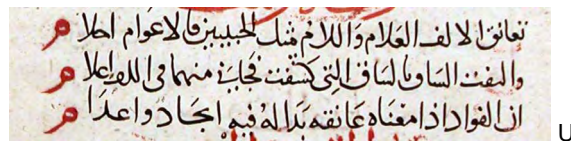 تعانق الالف العلام واللام مثل الحبيبين فالاعوام احلام
والتفت الساق بالساق التي كشفت فجاني منهما في اللف اعلام
ان الفواد اذا معناه عانقه بدا له فيه ايجاد واعدام
U